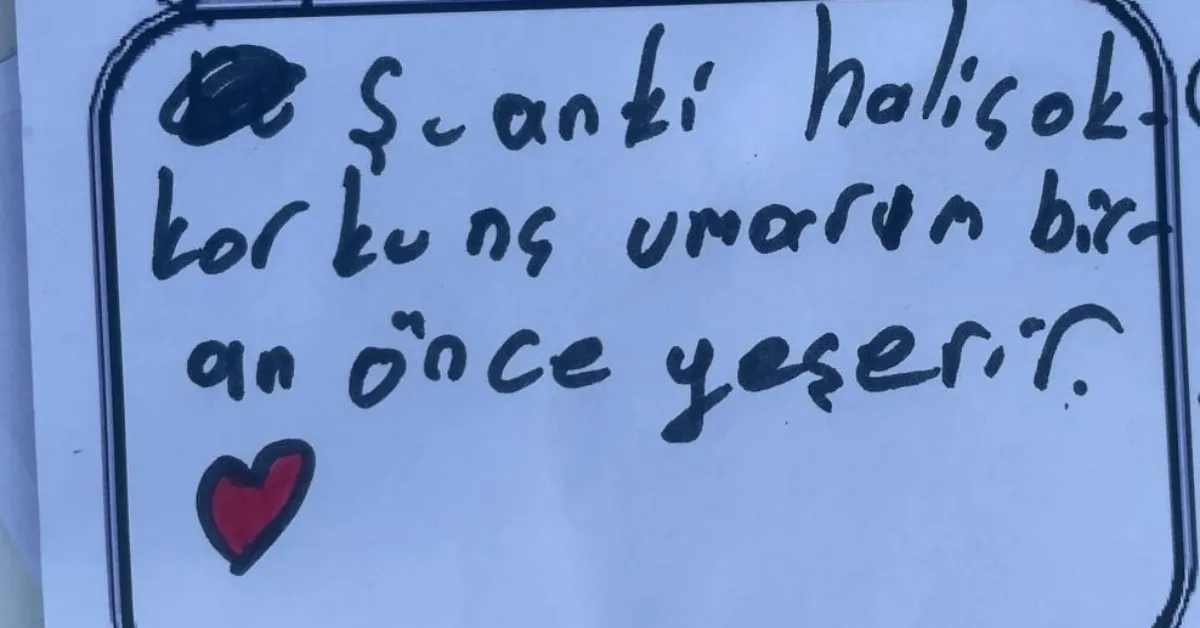 Şuanki haliçok-
korkunç umarım bir-
an önce yeşerir.